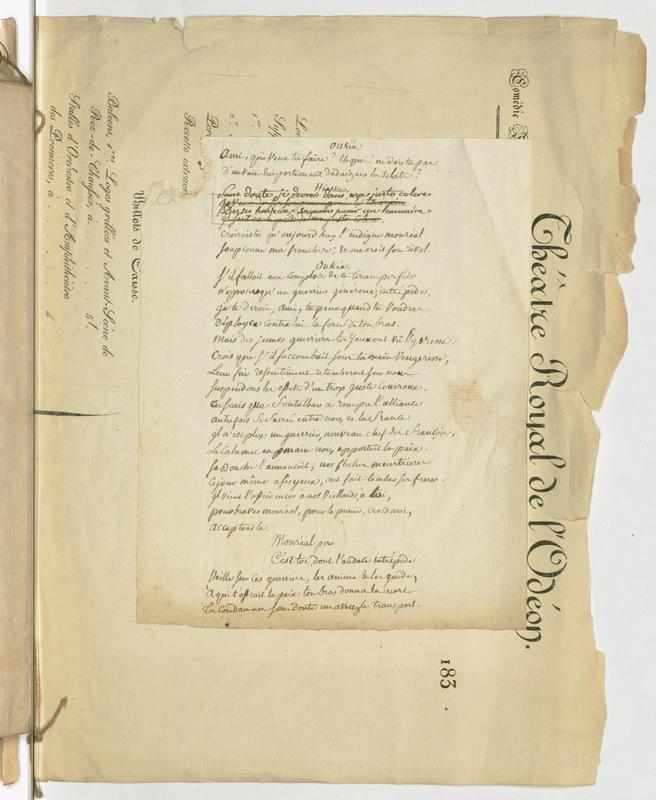 Comédie
Théâtre Royal de l'Odéon.
183
Recette
Billets de Caisse.
Balcons, 1res Loges grillées et Avant-Scène de
Rez-de-Chaussée, à . . . . 5f.
Stalles d'Orchestre et d'Amphithéâtre
des Premières, à . . . . 4
Oukéa.
Ami, que veux tu faire? Et quoi! ne dois tu pas
d'un vain emportement dédaigner
Sans doute, je devrois dans ma juste colere
Croirois tu qu'aujourd'huy l'indigne monréal
soupconne ma franchise; se croit son rival.
Oukéa.
S'il falloit aux complots de ce tiran perfide
n'opposer qu'un guerrier généreux, intrépide,
je te dirois, ami, tu peux quand tu voudras
Déployer contre lui la force de ton bras.
Mais des jeunes guerriers les yeux ont vû
Crois que s'il succombait sous ta main vengeresse,
Leur fier ressentiment retomberoit sur nous
suspendons les effets d'un trop juste courroux.
tu scais que Fontalbar a rompu l'alliance
autrefois si sacrée entre nous et la france
il n'est plus: un guerrier, nouveau chef des françois,
Le calumet en main nous apportoit la paix.
sa bouche l'annoncoit; nos fleches meurtrieres
ce jour même a ses yeux, ont fait tomber ses freres.
il vient l'offrir encor a nos vieillards, a toi,
pour braver monréal, pour le punir, crois moi,
acceptons la.
Monréal
C'est toi, dont l'audace intrépide
Veille sur ces guerriers, les anime et les guide,
a qui t'offroit la paix ton bras donna la mort
tu condamnes sans doute un aveugle transport.